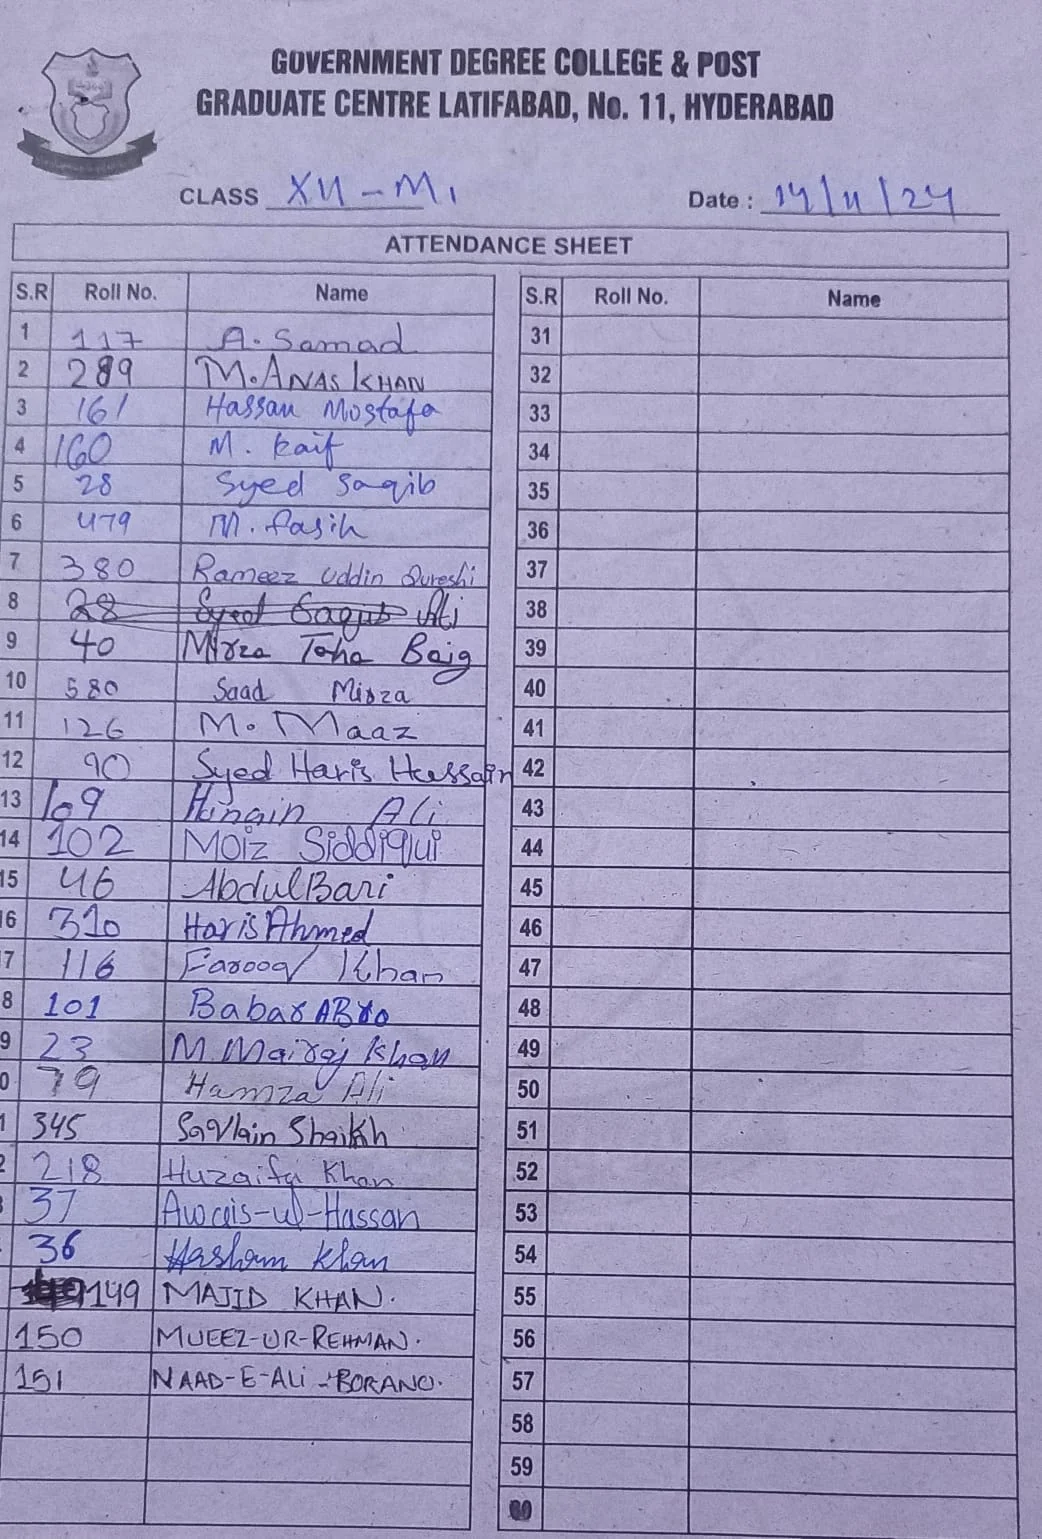 GOVERNMENT DEGREE COLLEGE & POST
GRADUATE CENTRE LATIFABAD, No. 11, HYDERABAD
CLASS XII - M1 Date : 14/11/24
ATTENDANCE SHEET
S.R Roll No. Name S.R Roll No. Name
1 117 A. Samad 31
2 289 M. ANAS KHAN 32
3 161 Hassan Mostafa 33
4 160 M. Kaif 34
5 28 Syed Saqib 35
6 479 M. fasih 36
7 380 Rameez Uddin Qureshi 37
8 28 Syed Saqub Ali 38
9 40 Mirza Taha Baig 39
10 580 Saad Mirza 40
11 126 M. Maaz 41
12 90 Syed Haris Hussain 42
13 109 Hunain Ali 43
14 102 Moiz Siddiqui 44
15 46 Abdul Bari 45
6 310 Haris Ahmed 46
7 116 Farooq Khan 47
8 101 Babar ABro 48
9 23 M. Mairaj Khan 49
0 79 Hamza Ali 50
1 345 Saqlain Shaikh 51
2 218 Huzaifa Khan 52
37 Awais-ul-Hassan 53
36 Hasham Khan 54
149 MAJID KHAN. 55
150 MUEEZ-UR-REHMAN. 56
151 NAAD-E-ALI - BORANO. 57
58
59
60